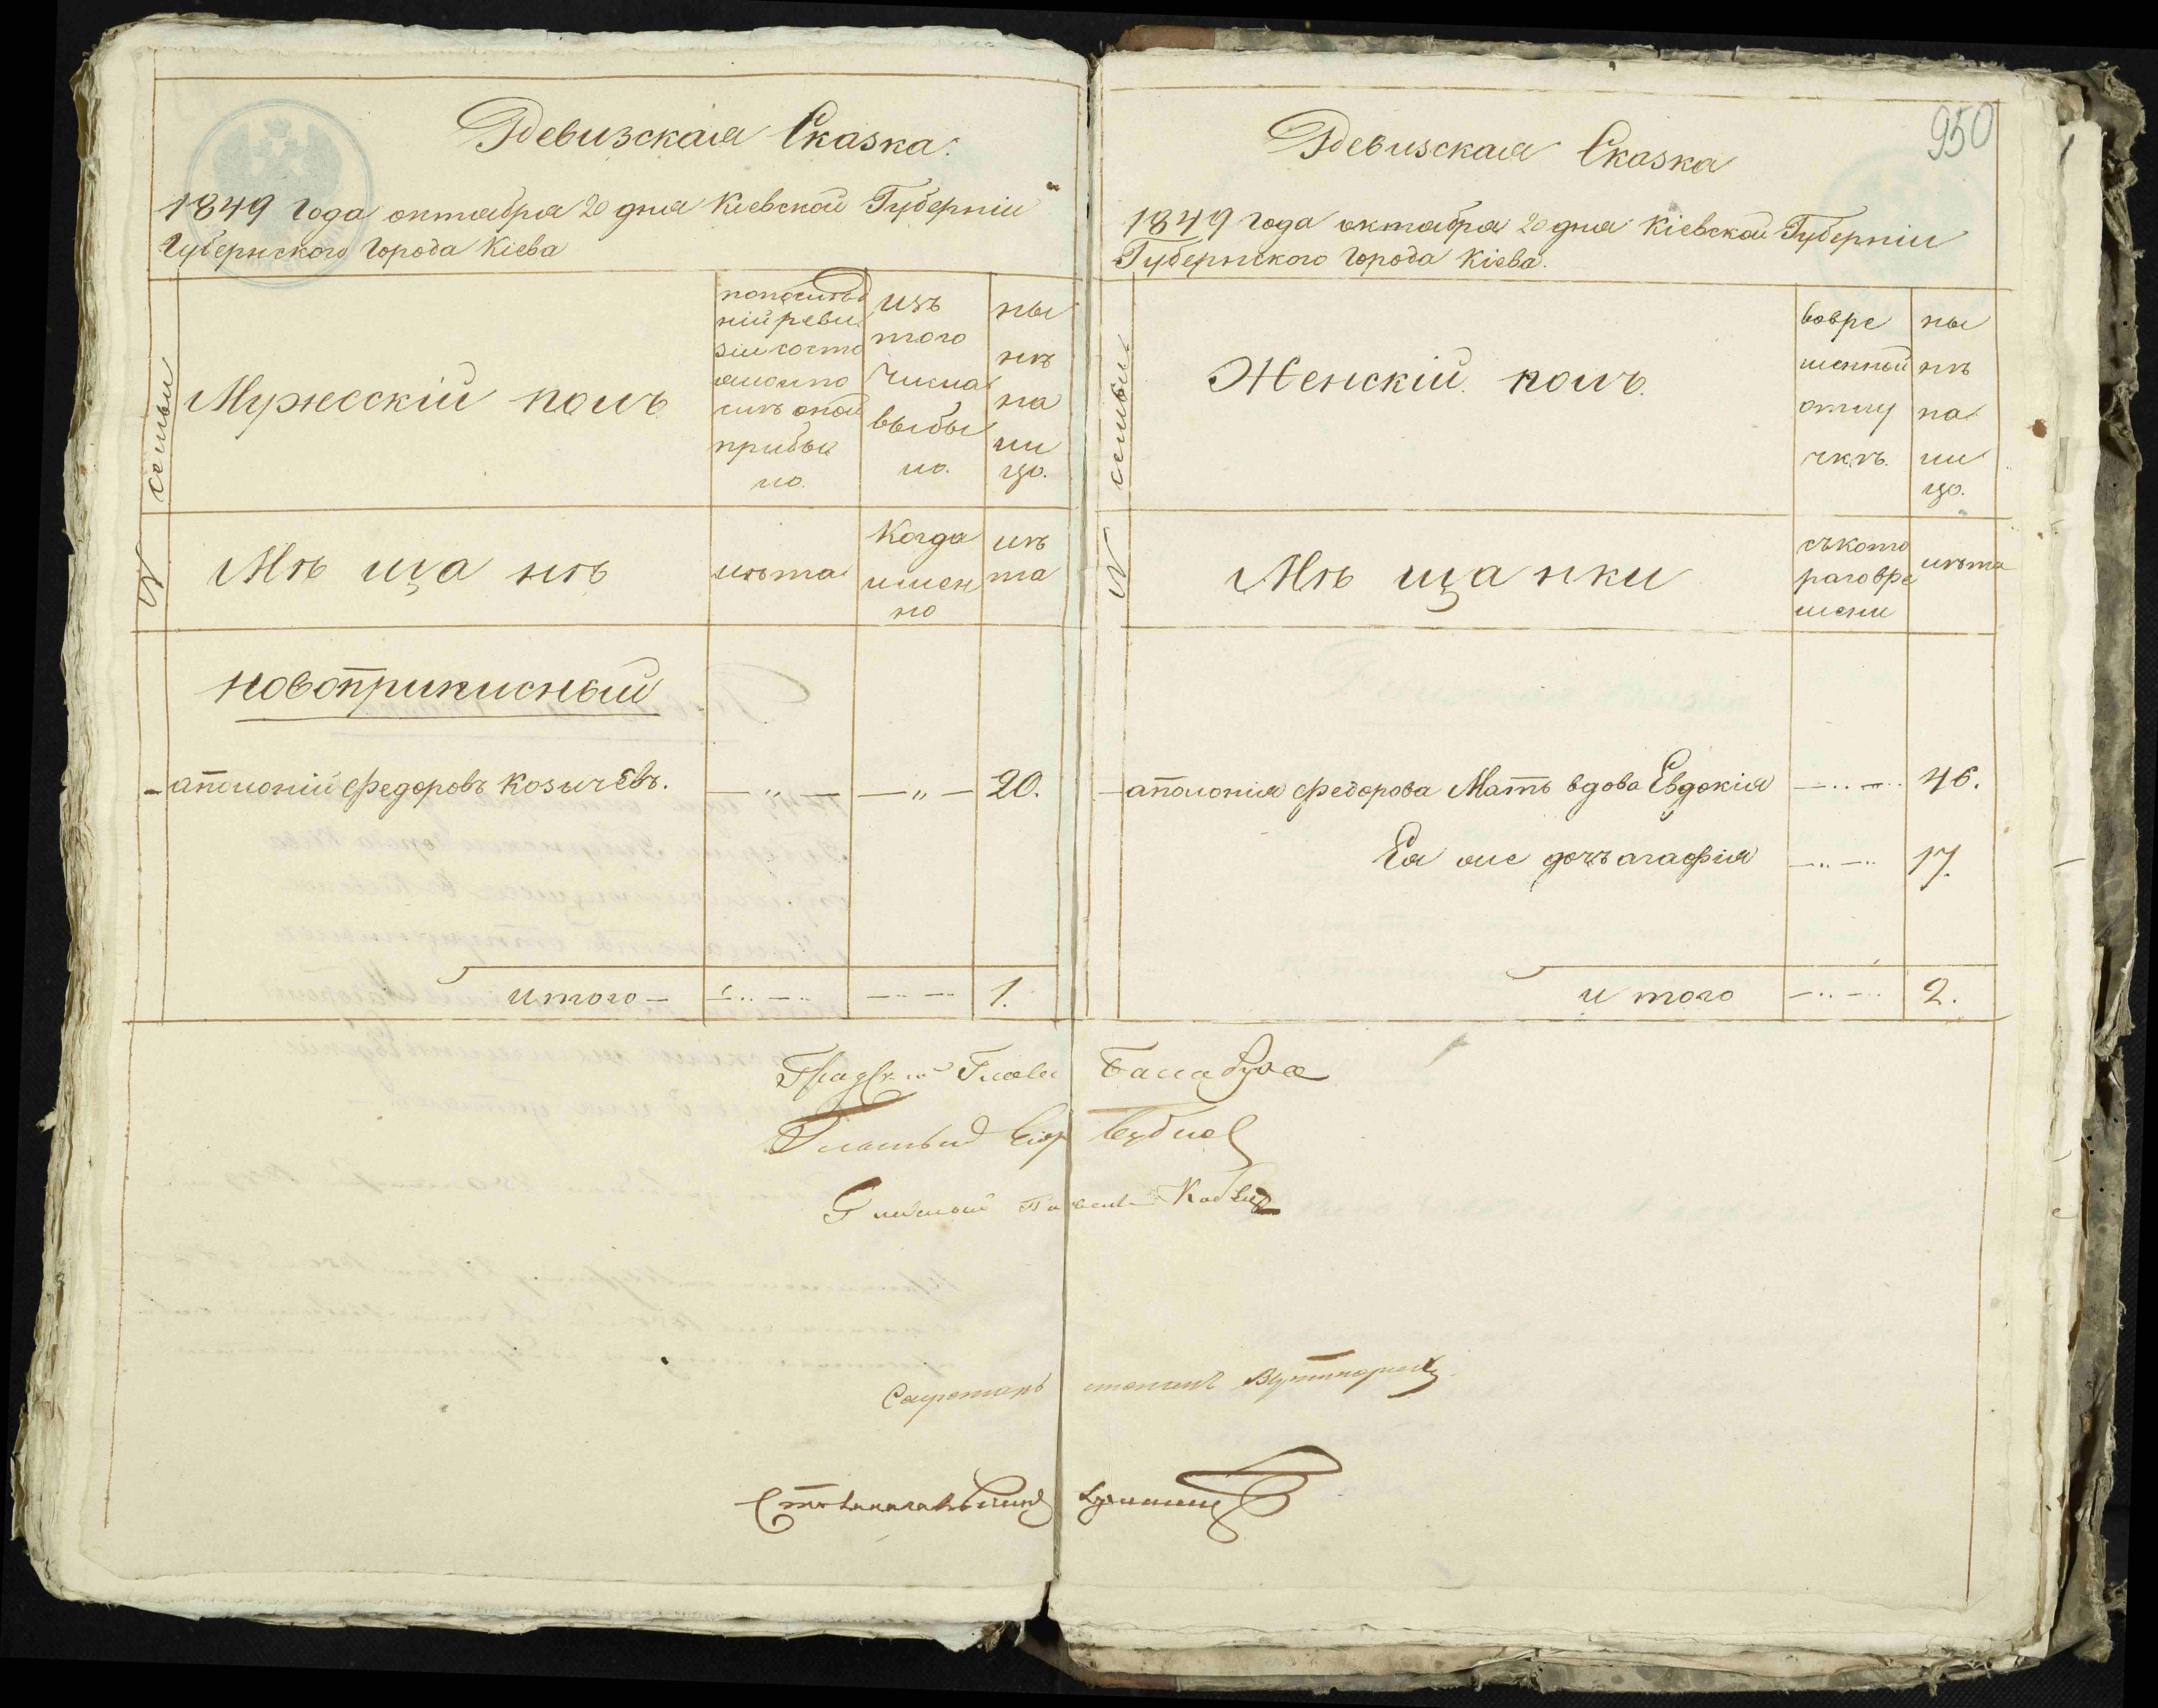 Ревизская Сказка.
1849 года октабря 20 дня Кіевской Губерніи
Губернского города Кіева
№ семьи
Мужескій полъ
попослѣд
ней реви
зіи состо
яло и по
слѣ оной
прибы
ло.
изъ
того
числа
выбы
ло.
ны
нѣ
на
ли
цо.
Мѣ ща нѣ
лѣта
Когда
имен
но
лѣ
та
новоприписный
аполоній Федоровъ Козычевъ. — „ — — „ — 20.
итого — 1.
950
Ревизская Сказка
1849 года октабря 20 дня Кіевской Губерніи
Губернского города Кіева.
№ семьи
Женскій полъ.
вовре
менной
отлу
чкѣ.
ны
нѣ
на
ли
цо.
Мѣ ща нки
съ кото
раго вре
мени
лѣта
аполонія Федорова Мать вдова Евдокія 46.
Ея же дочъ агафія 17.
и того 2.
Градской Глава Балабуха
Гласный
Гласный
Секретарь
Столоначальникъ